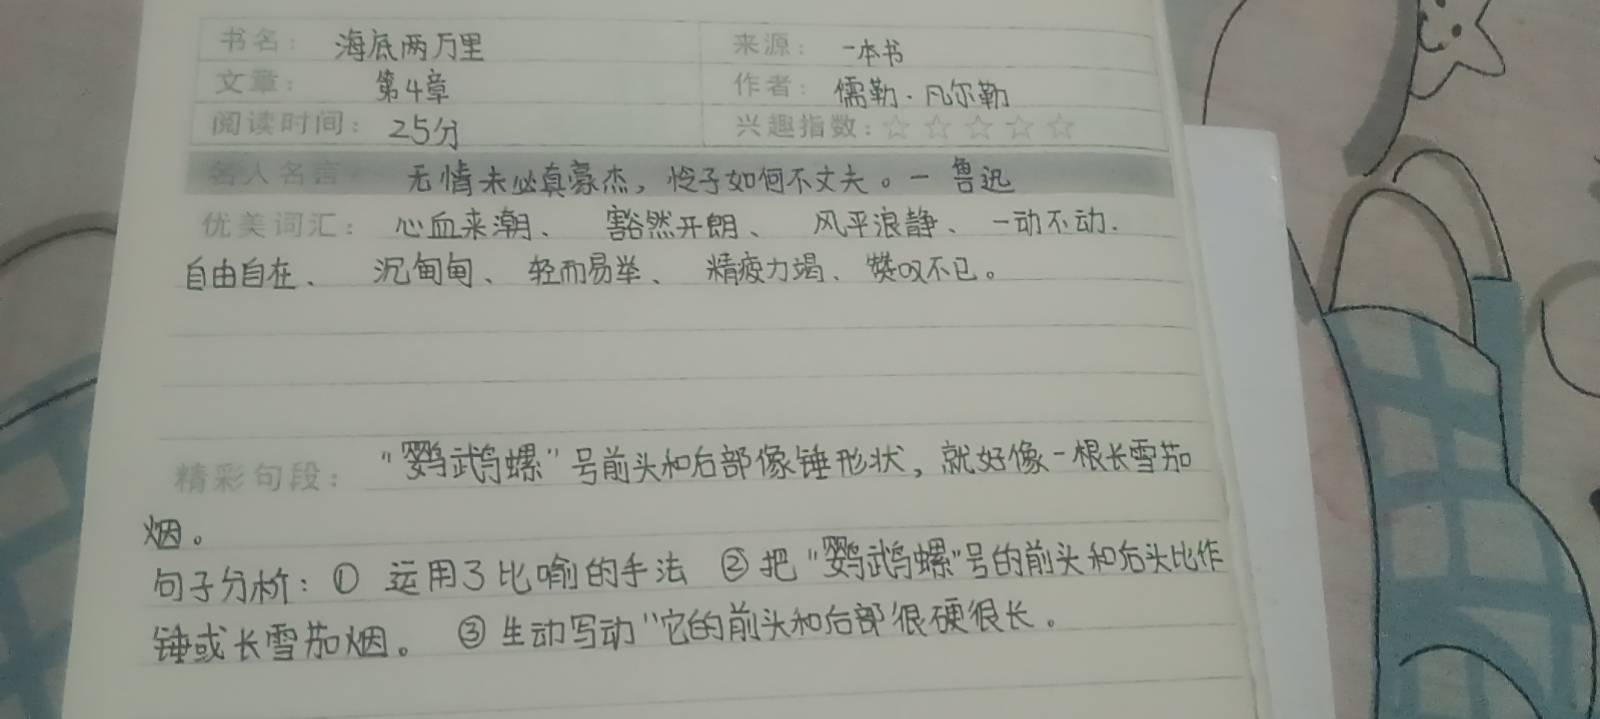 书名： 海底两万里 来源： 一本书
文章： 第4章 作者： 儒勒·凡尔勒
阅读时间： 25分 兴趣指数：☆☆☆☆☆
名人名言： 无情未必真豪杰，怜子如何不丈夫。一 鲁迅
优美词汇： 心血来潮、 豁然开朗、 风平浪静、 一动不动.
自由自在、 沉甸甸、 轻而易举、 精疲力竭、 赞叹不已。
精彩句段： “鹦鹉螺”号前头和后部像锤形状，就好像一根长雪茄
烟。
句子分析：① 运用了比喻的手法 ② 把“鹦鹉螺”号的前头和后头比作
锤或长雪茄烟。 ③ 生动写动“它的前头和后部很硬很长。